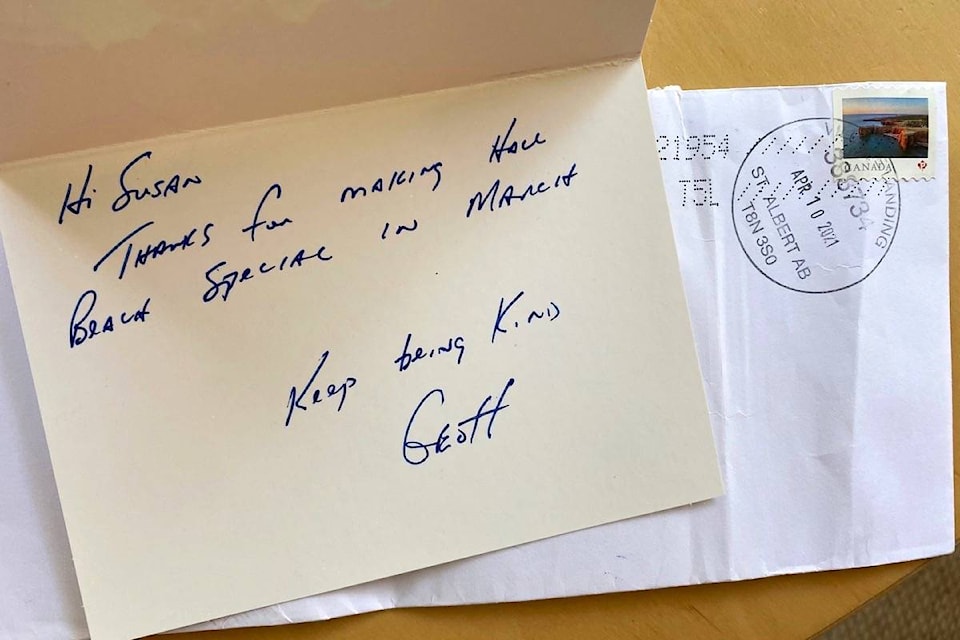 Hi Susan
Thanks for making Hall
Beach Special in March
Keep being Kind
Geoff
21954
T5L
CANADA
P
388734
LANDING
APR 10 2021
ST. ALBERT AB
T8N 3S0